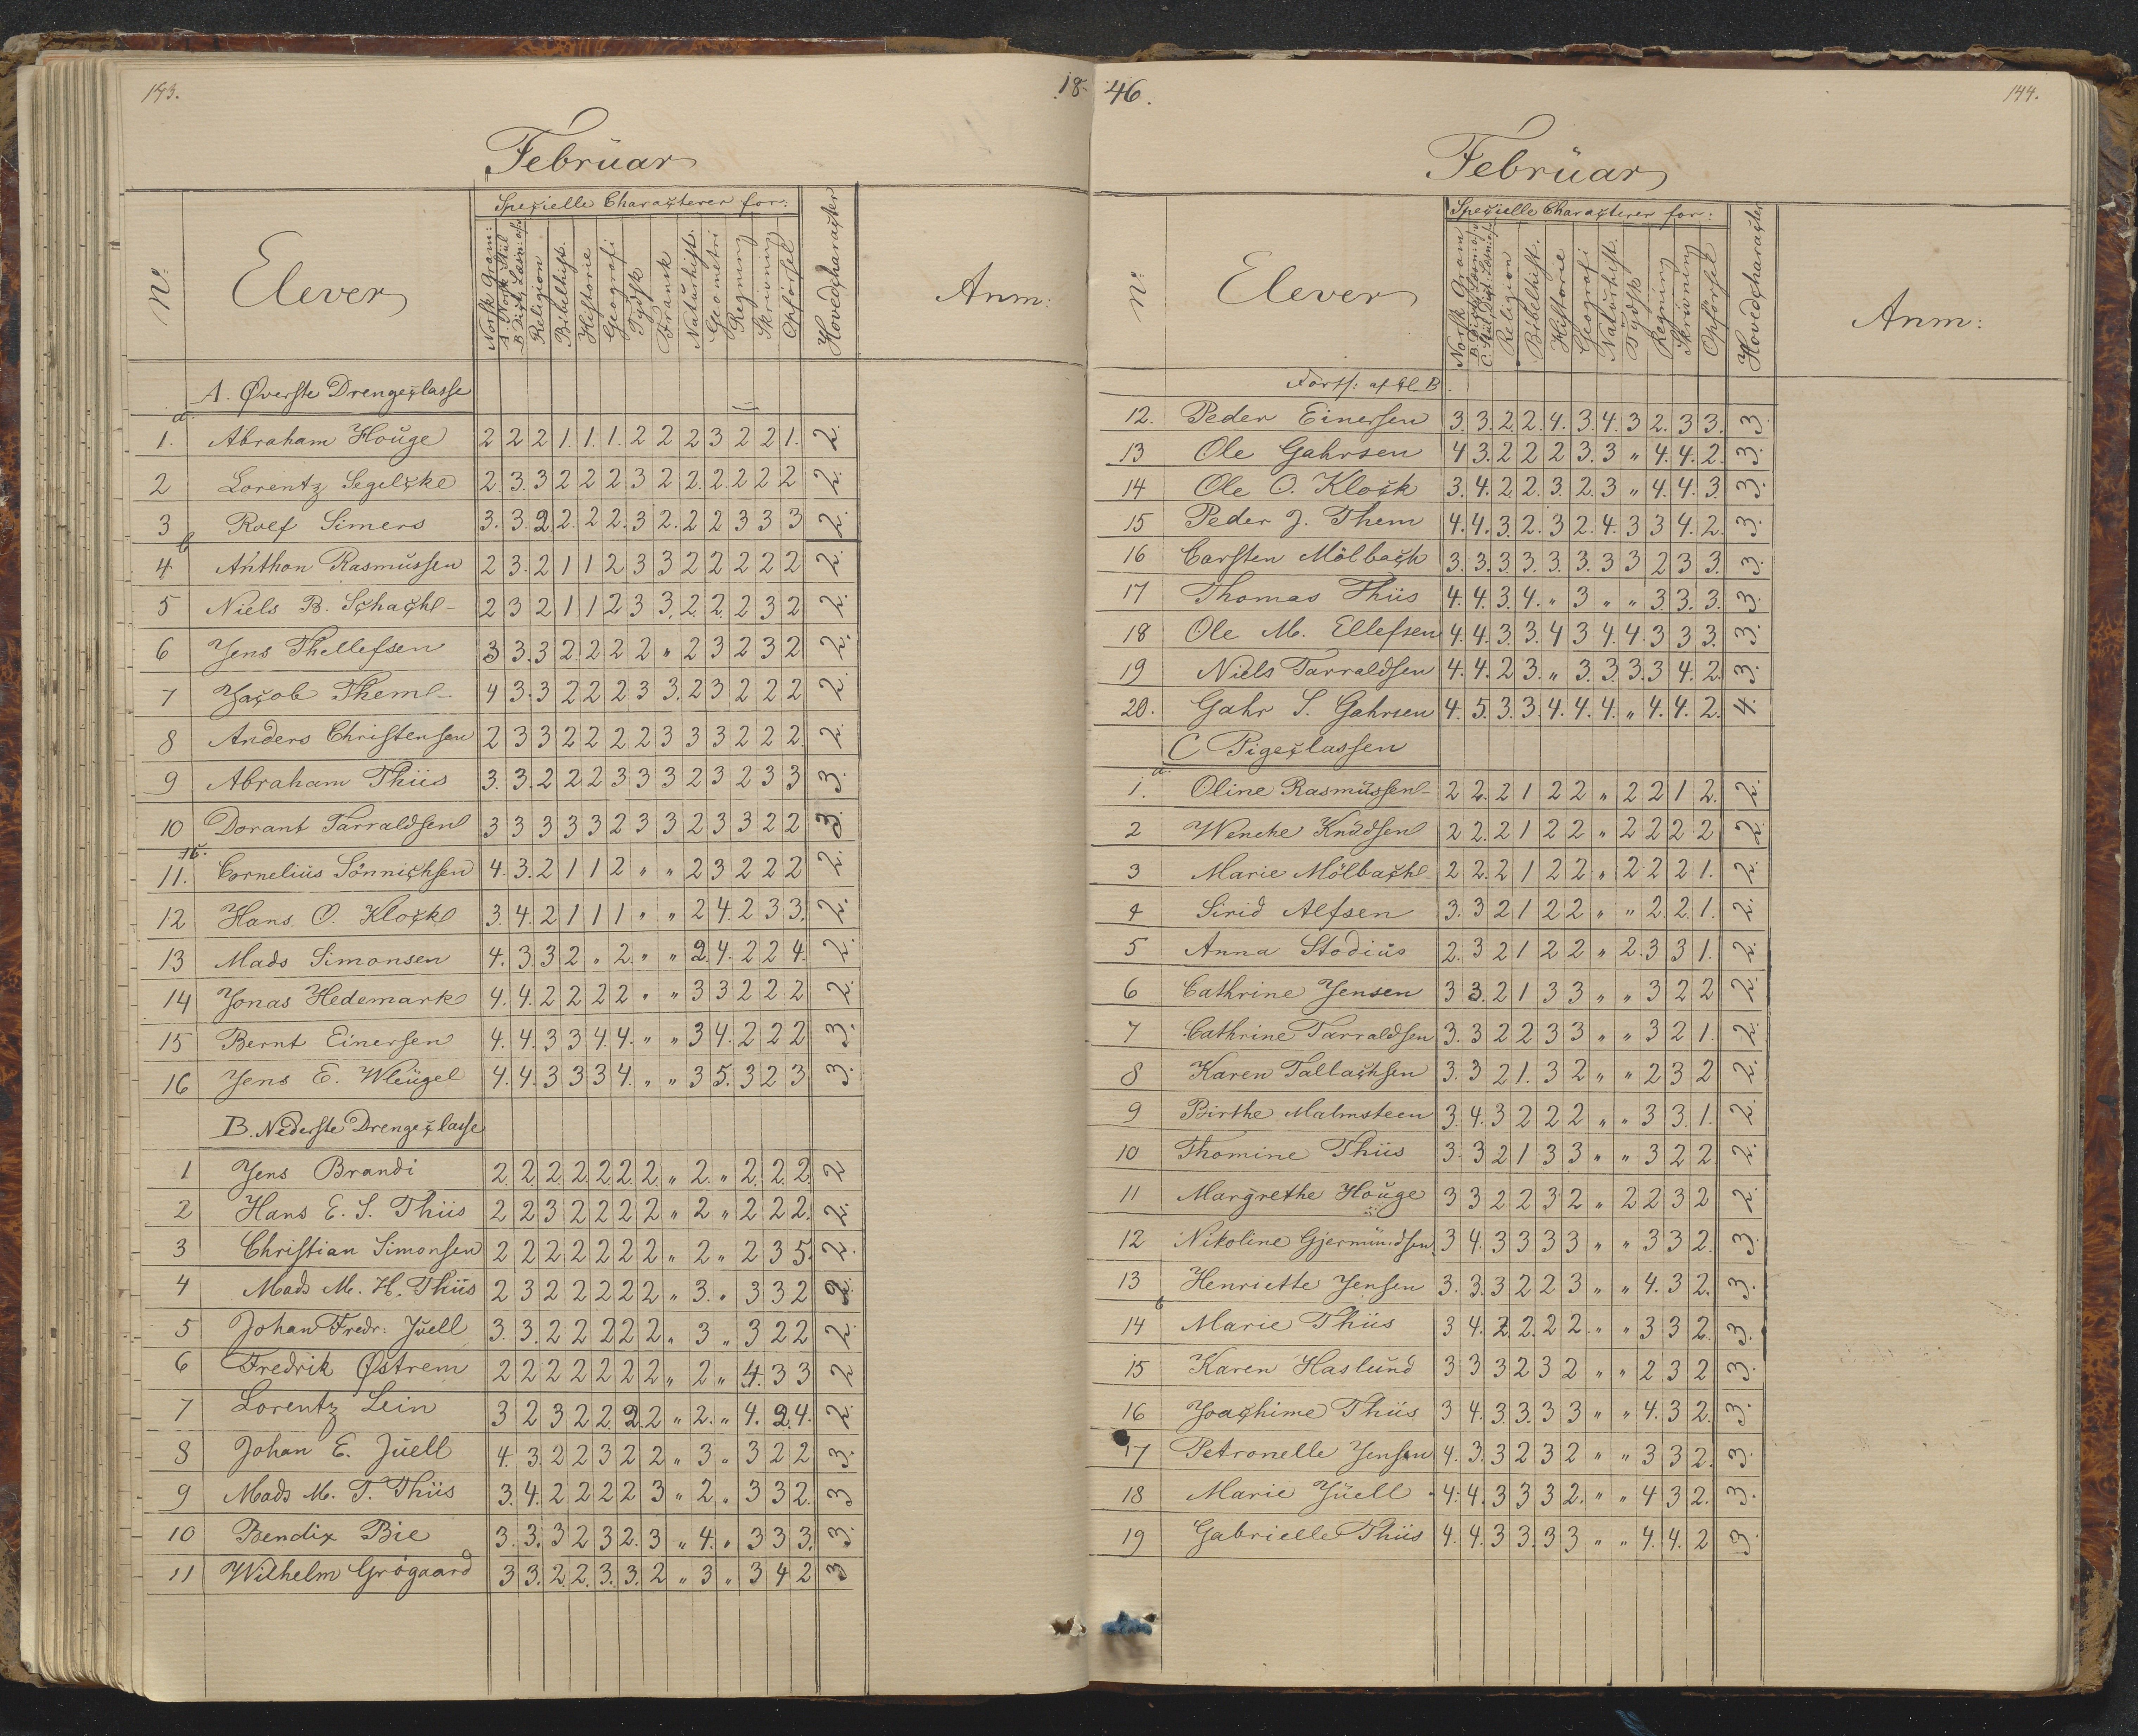 143.
18-
Februar
Speçielle Charaçterer for:
Nº
Elever
Norsk Gram:
A. Norsk Stiil
B. Dict. Læsn: 
Religion
Bibelhist.
Historie
Geografi
Tydsk
Fransk
Naturhist.
Geometri
Regning
Skrivning
Opførsel
Hovedcharacter
Anm:
A. Øverste Drengeclasse
a.
1. Abraham Houge 2 2 2 1. 1. 1. 2 2 2 3 2 2 1. 2.
2 Lorentz Segelcke 2. 3. 3 2 2 2 3 2 2. 2. 2 2 2 2.
3 Rolf Simers 3. 3. 2. 2. 2 2. 3 2. 2 2 3 3 3 2.
b
4 Anthon Rasmussen 2 3. 2 1 1 2 3 3 2 2 2 2 2 2.
5 Niels B. Schach 2 3 2 1 1 2 3 3. 2. 2. 2 3 2 2.
6 Jens Thellefsen 3 3. 3 2. 2 2 2 " 2 3 2 3 2 2.
7 Jacob Them 4 3. 3 2 2 2 3 3. 2 3 2 2 2 2.
8 Anders Christensen 2 3 3 2 2 2 2 3 3 3 2 2 2. 2.
9 Abraham Thiis 3. 3. 2 2 2 3 3 3 2 3 2 3 3 3.
10 Dorant Tarraldsen 3 3 3 3 3 2 3 3 2 3 3 2 2 3.
11. Cornelius Sönnichsen 4. 3. 2 1 1 2 " " 2 3 2 2 2 2.
12 Hans O. Klock 3. 4. 2 1 1 1 " " 2 4. 2 3 3. 2.
13 Mads Simonsen 4. 3. 3 2 " 2. " " 2 4. 2 2 4. 2.
14 Jonas Hedemark 4. 4. 2 2 2 2 " " 3 3 2 2 2 2.
15 Bernt Einersen 4. 4. 3 3 4. 4. " " 3 4. 2 2 2 3.
16 Jens E. Wleugel 4. 4. 3 3 3 4. " " 3 5. 3 2 3 3.
B. Nederste Drengeclasse
1 Jens Brandi 2. 2. 2. 2. 2. 2. 2. " 2. " 2. 2. 2. 2
2 Hans E. S. Thiis 2 2 3 2 2 2 2 " 2 " 2 2 2. 2.
3 Christian Simonsen 2 2 2 2 2 2 2 " 2 " 2 3 5. 2.
4 Mads M. H. Thiis 2 3 2 2 2 2 2 " 3. " 3 3 2 2.
5 Johan Fredr: Juell 3. 3. 2 2 2 2 2. " 3 " 3 2 2 2.
6 Fredrik Østrem 2 2 2 2 2 2 2. " 2 " 4. 3 3 2
7 Lorentz Lein 3 2 3 2 2. 2. 2 " 2. " 4. 2 4. 2.
8 Johan E. Juell 4. 3. 2 2 3 2 2 " 3 " 3 2 2 3.
9 Mads M. T. Thiis 3. 4. 2 2 2 2 3 " 2 " 3 3 2. 3
10 Bendix Bie 3. 3. 3 2 3 2. 3 " 4. " 3 3 3. 3.
11 Wilhelm Grögaard 3 3. 2. 2. 3. 3. 2 " 3 " 3 4 2 3
46.
144.
Februar
Speçielle Characterer for:
Nº
Elever
Norsk Gram
Religion
Bibelhist.
Historie
Geografi
Naturhist.
Tydsk
Regning
Skrivning
Opførsel
Hovedcharacter
Anm:
Forts: af Cl. B.
12. Peder Einersen 3. 3. 2. 2. 4. 3. 4. 3 2. 3 3. 3.
13 Ole Gahrsen 4 3. 2 2 2 3. 3 " 4. 4. 2. 3.
14 Ole O. Klock 3. 4. 2. 2. 3. 2. 3 " 4. 4. 3. 3.
15 Peder J. Them 4. 4. 3. 2. 3 2. 4. 3 3 4. 2. 3.
16 Carsten Mölbach 3. 3. 3. 3. 3. 3. 3 3 2 3 3. 3.
17 Thomas Thiis 4. 4. 3. 4. " 3 " " 3. 3. 3. 3.
18 Ole M. Ellefsen 4. 4. 3. 3. 4 3 4. 4. 3 3 3. 3.
19 Niels Tarraldsen 4. 4. 2 3. " 3. 3. 3. 3 4. 2. 3.
20. Gahr S. Gahrsen 4. 5. 3. 3. 4. 4. 4. " 4. 4. 2. 4.
C Pigeclassen
a.
1. Oline Rasmussen 2 2. 2 1 2 2 " 2 2 1 2. 2.
2 Wenche Knudsen 2 2. 2 1 2 2 " 2 2 2 2 2.
3 Marie Mölbach 2 2. 2 1 2 2 " 2 2 2 1. 2.
4 Sirid Alfsen 3. 3 2 1 2 2 " " 2. 2. 1. 2.
5 Anna Stodius 2. 3 2 1 2 2 " 2. 3 3 1. 2.
6 Cathrine Jensen 3 3. 2 1 3 3 " " 3 2 2 2.
7 Cathrine Tarraldsen 3. 3 2 2 3 3 " " 3 2 1. 2.
8 Karen Tallachsen 3. 3 2 1. 3 2 " " 2 3 2 2.
9 Birthe Malmsteen 3. 4. 3 2 2 2 " " 3 3. 1. 2.
10 Thomine Thiis 3. 3 2 1 3 3 " " 3 2 2 2.
11 Margrethe Houge 3 3 2 2 3 2 " 2 2 3 2 2.
12 Nikoline Gjermundsen 3 4. 3 3 3 3 " " 3 3 2. 3.
13 Henriette Jensen 3. 3. 3 2 2 3 " " 4. 3 2. 3.
b
14 Marie Thiis 3 4. 2. 2. 2 2 " " 3 3 2. 3.
15 Karen Haslund 3 3 3 2 3 2 " " 2 3 2 3.
16 Joachime Thiis 3 4. 3. 3. 3 3 " " 4. 3 2. 3.
17 Petronelle Jensen 4. 3. 3 2 3 2 " " 3 3 2. 3.
18 Marie Juell 4. 4. 3 3 3 2. " " 4 3 2. 3.
19 Gabrielle Thiis 4. 4. 3 3. 3 3 " " 4. 4. 2 3.